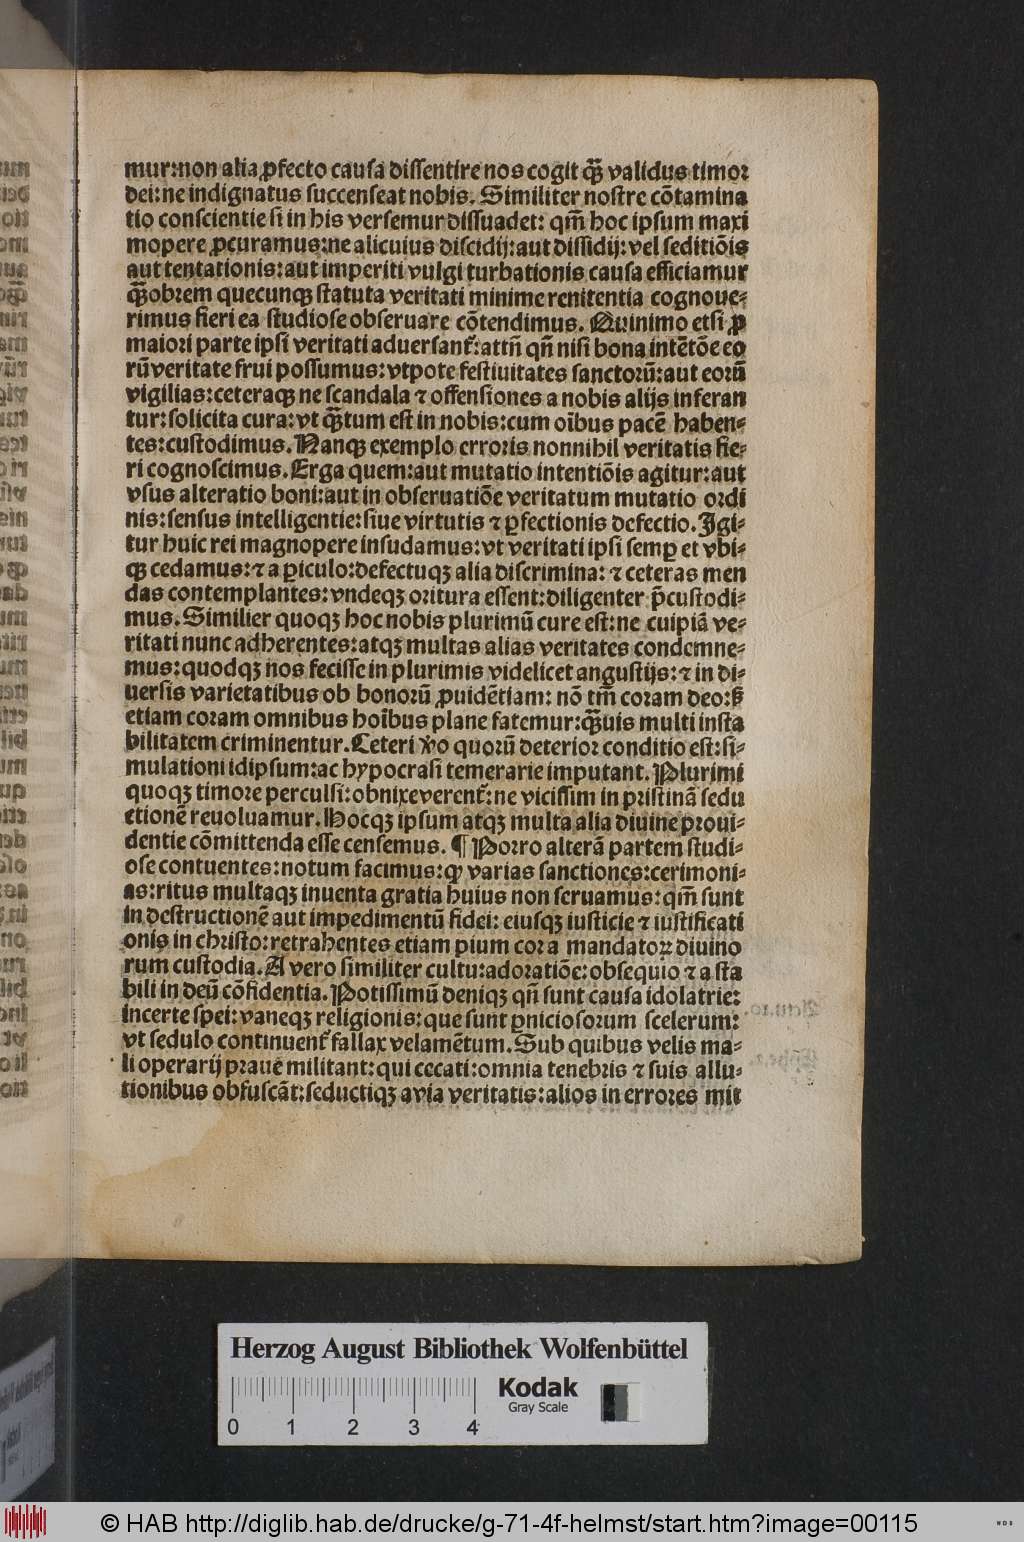 mur:non alia ꝓfecto causa dissentire nos cogit q̃ȝ validus timor
dei:ne indignatus succenseat nobis. Similiter nostre cõtamina
tio conscientie si in his versemur dissuadet: qm̃ hoc ipsum maxi
mopere ꝓcuramus:ne alicuius discidij:aut dissidij:vel seditiõis
aut tentationis:aut imperiti vulgi turbationis causa efficiamur
q̃ȝobrem quecunqȝ statuta veritati minime renitentia cognoue⸗
rimus fieri ea studiose obseruare cõtendimus. Quinimo etsi ꝓ
maiori parte ipsi veritati aduersant᷑:attñ qñ nisi bona intẽtõe eo
rũ veritate frui possumus:vtpote festiuitates sanctorũ:aut eorũ
vigilias:ceteraqȝ ne scandala ⁊ offensiones a nobis alijs inferan
tur:solicita cura:vt q̃ȝtum est in nobis:cum oĩbus pacẽ haben⸗
tes:custodimus. Nanqȝ exemplo erroris nonnihil veritatis fie⸗
ri cognoscimus. Erga quem:aut mutatio intentiõis agitur:aut
vsus alteratio boni:aut in obseruatiõe veritatum mutatio ordi
nis:sensus intelligentie:siue virtutis ⁊ ꝑfectionis defectio. Igi⸗
tur huic rei magnopere insudamus:vt veritati ipsi semꝑ et vbi⸗
qȝ cedamus:⁊ a ꝑiculo:defectuqȝ alia discrimina: ⁊ ceteras men
das contemplantes:vndeqȝ oritura essent:diligenter p̃custodi⸗
mus. Similier quoqȝ hoc nobis plurimũ cure est:ne cuipiã ve⸗
ritati nunc adherentes:atqȝ multas alias veritates condemne⸗
mus:quodqȝ nos fecisse in plurimis videlicet angustijs:⁊ in di⸗
uersis varietatibus ob bonorũ ꝓuidẽtiam: nõ tm̃ coram deo:sȝ
etiam coram omnibus hoĩbus plane fatemur:q̃ȝuis multi insta
bilitatem criminentur. Ceteri v̾o quorũ deterior conditio est:si⸗
mulationi idipsum:ac hypocrasi temerarie imputant. Plurimi
quoqȝ timore perculsi:obnixe verent᷑:ne vicissim in pristinã sedu
ctionẽ reuoluamur. Hocqȝ ipsum atqȝ multa alia diuine proui⸗
dentie cõmittenda esse censemus. ¶ Porro alterã partem studi⸗
ose contuentes:notum facimus:ꝙ varias sanctiones:cerimoni⸗
as:ritus multaqȝ inuenta gratia huius non seruamus:qm̃ sunt
in destructionẽ aut impedimentũ fidei: eiusqȝ iusticie ⁊ iustificati
onis in christo:retrahentes etiam pium cor a mandatoꝝ diuino
rum custodia. A vero similiter cultu:adoratiõe:obsequio ⁊ a sta
bili in deũ cõfidentia. Potissimũ deniqȝ qñ sunt causa idolatrie:
incerte spei:vaneqȝ religionis:que sunt ꝑniciosorum scelerum:
vt sedulo continuent᷑ fallax velamẽtum. Sub quibus velis ma⸗
li operarij prauẽ militant:qui cecati:omnia tenebris ⁊ suis allu⸗
tionibus obfuscãt:seductiqȝ avia veritatis:alios in errores mit
Herzog August Bibliothek Wolfenbüttel
Kodak
Gray Scale
0 1 2 3 4
© HAB http://diglib.hab.de/drucke/g-71-4f-helmst/start.htm?image=00115
WDB